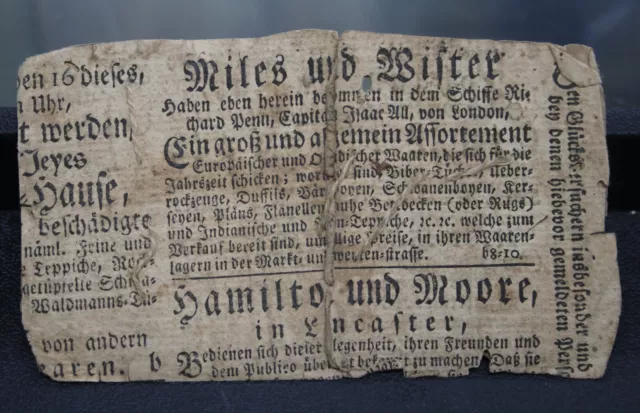 den 16 dieses,
n Uhr,
t werden,
Jeyes
Hause,
beschädigte
näml. Feine und
e Teppiche,
getüpfelte
Waldmanns-Tü-
von andern
aaren. b
Miles und Wister
Haben eben herein bekommen in dem Schiffe Ri-
chard Penn, Capitän Isaac All, von London,
Ein groß und allgemein Assortement
Europäischer und Ostindischer Waaren, die sich für die
Jahrszeit schicken; worunter sind Biber-Tücher, Ueber-
rockzeuge, Duffils, Bärenboyen, Schwanenboyen, Ker-
seyen, Pläns, Flanellen, rauhe Betdecken (oder Rugs)
und Indianische und Teppiche, ꝛc. ꝛc. welche zum
Verkauf bereit sind, um billige Preise, in ihren Waaren-
lagern in der Markt- und Zweyten-strasse. b8-10.
Hamilton und Moore,
in Lancaster,
Bedienen sich dieser Gelegenheit, ihren Freunden und
dem Publico überhaupt bekannt zu machen, Daß sie
Den Glücks-ersuchern insbesonder und
bey denen hiebevor gemeldeten Perso